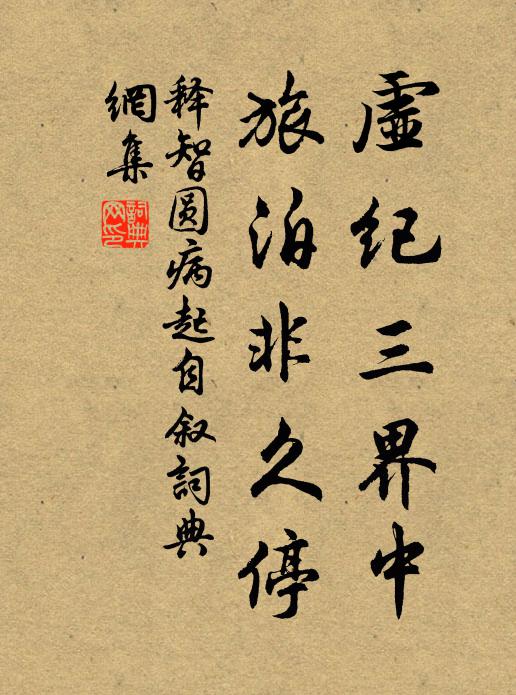 虛紀三界中
旅泊非久停
释智圆病起自叙詞典
網集
詞典
网印